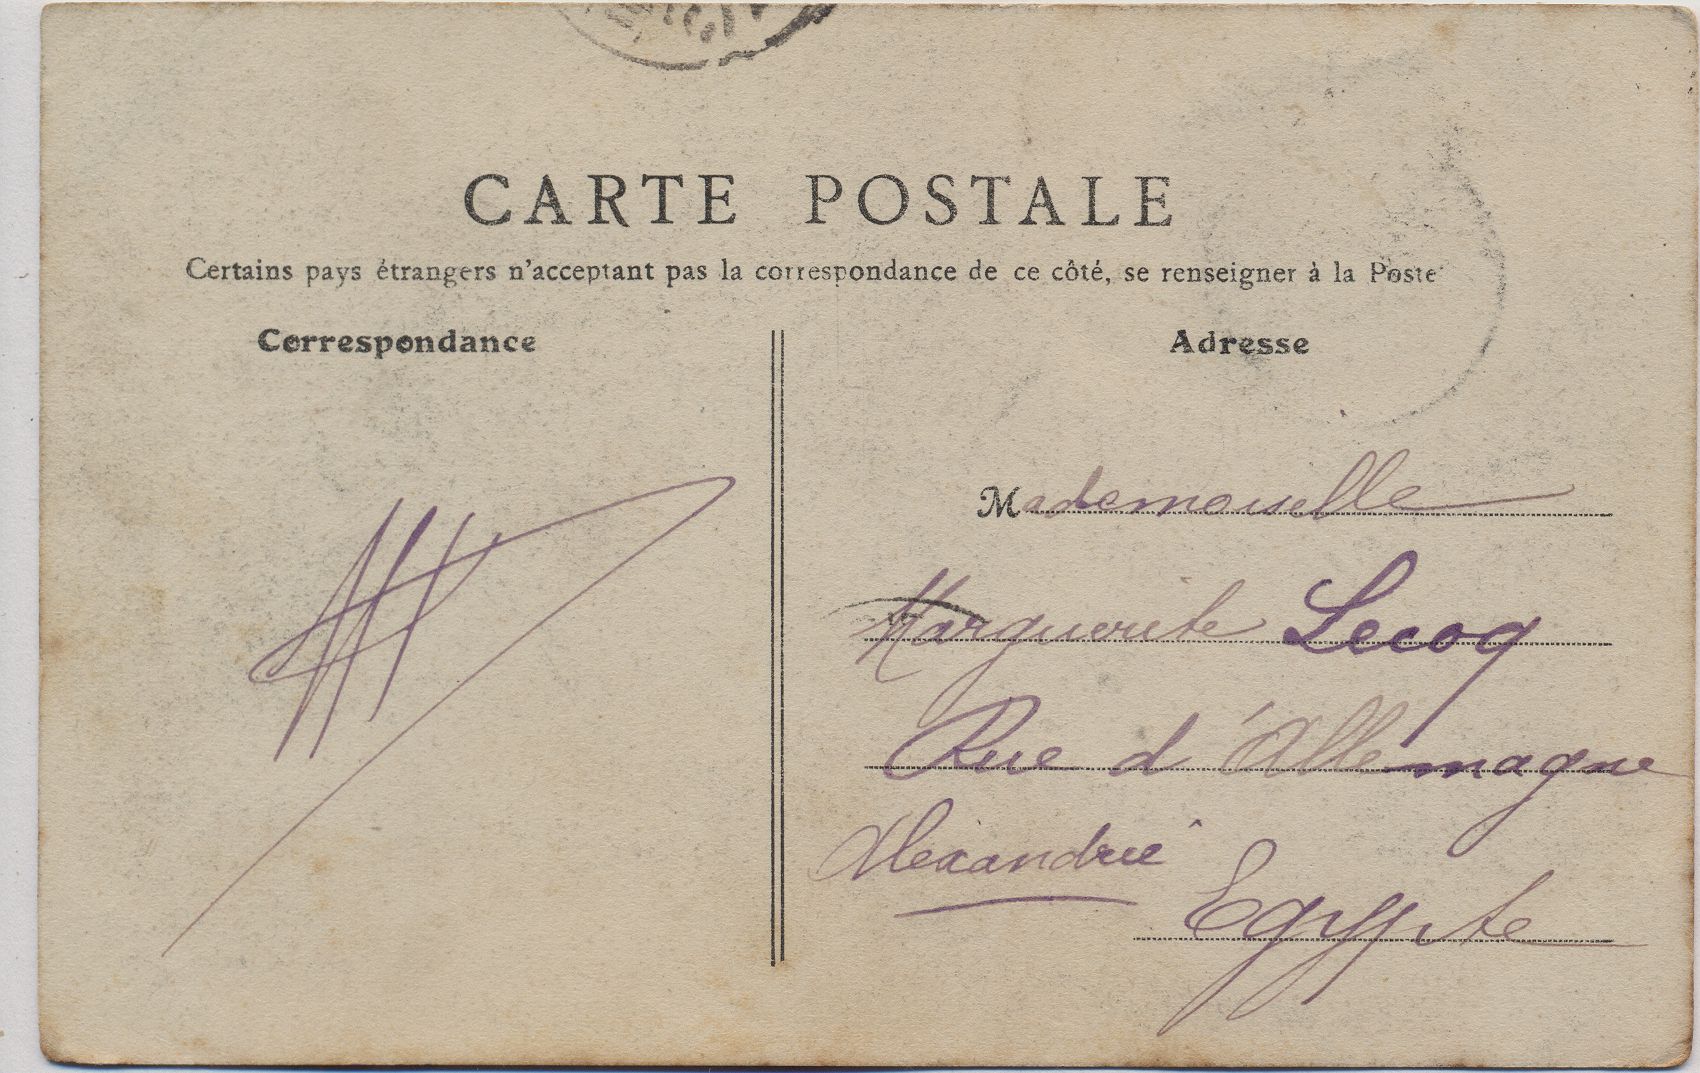 CARTE POSTALE
Certains pays étrangers n'acceptant pas la correspondance de ce côté, se renseigner à la Poste
Correspondance
Adresse
Mademoiselle
Marguerite Lecoq
Rue d'Allemagne
Alexandrie
Egypte